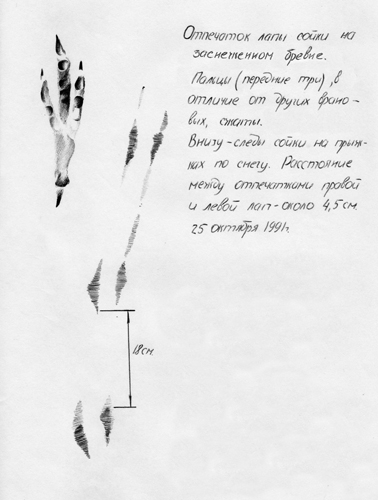 Отпечаток лапы сойки на
заснеженном бревне.
Пальцы (передние три), в
отличие от других врано-
вых, сжаты.
Внизу - следы сойки на прыж-
ках по снегу. Расстояние
между отпечатками правой
и левой лап - около 4,5 см.
25 октября 1991г.
18 см.